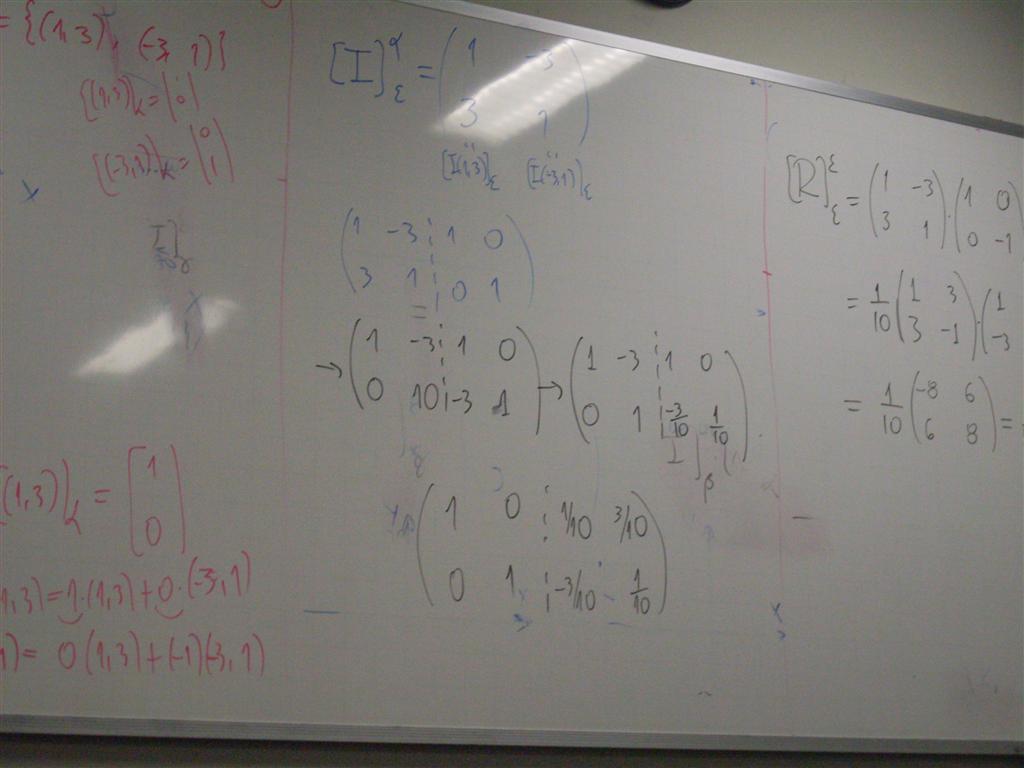 = {(1,3), (-3,1)}
[(1,3)]α = (1 0)
[(-3,1)]α = (0 1)
[(1,3)]α = [1 0]
1,3) = 1·(1,3) + 0·(-3,1)
1) = 0(1,3) + (-1)(-3,1)
[I]^α_ε = (1 -3
3 1)
[I(1,3)]ε [I(-3,1)]ε
(1 -3 ¦ 1 0
3 1 ¦ 0 1)
→ (1 -3 ¦ 1 0
0 10 ¦ -3 1)
→ (1 -3 ¦ 1 0
0 1 ¦ -3/10 1/10)
(1 0 ¦ 1/10 3/10
0 1 ¦ -3/10 1/10)
[R]^ε_ε = (1 -3
3 1) · (1 0
0 -1
= 1/10 (1 3
3 -1) · (1
-3
= 1/10 (-8 6
6 8) =